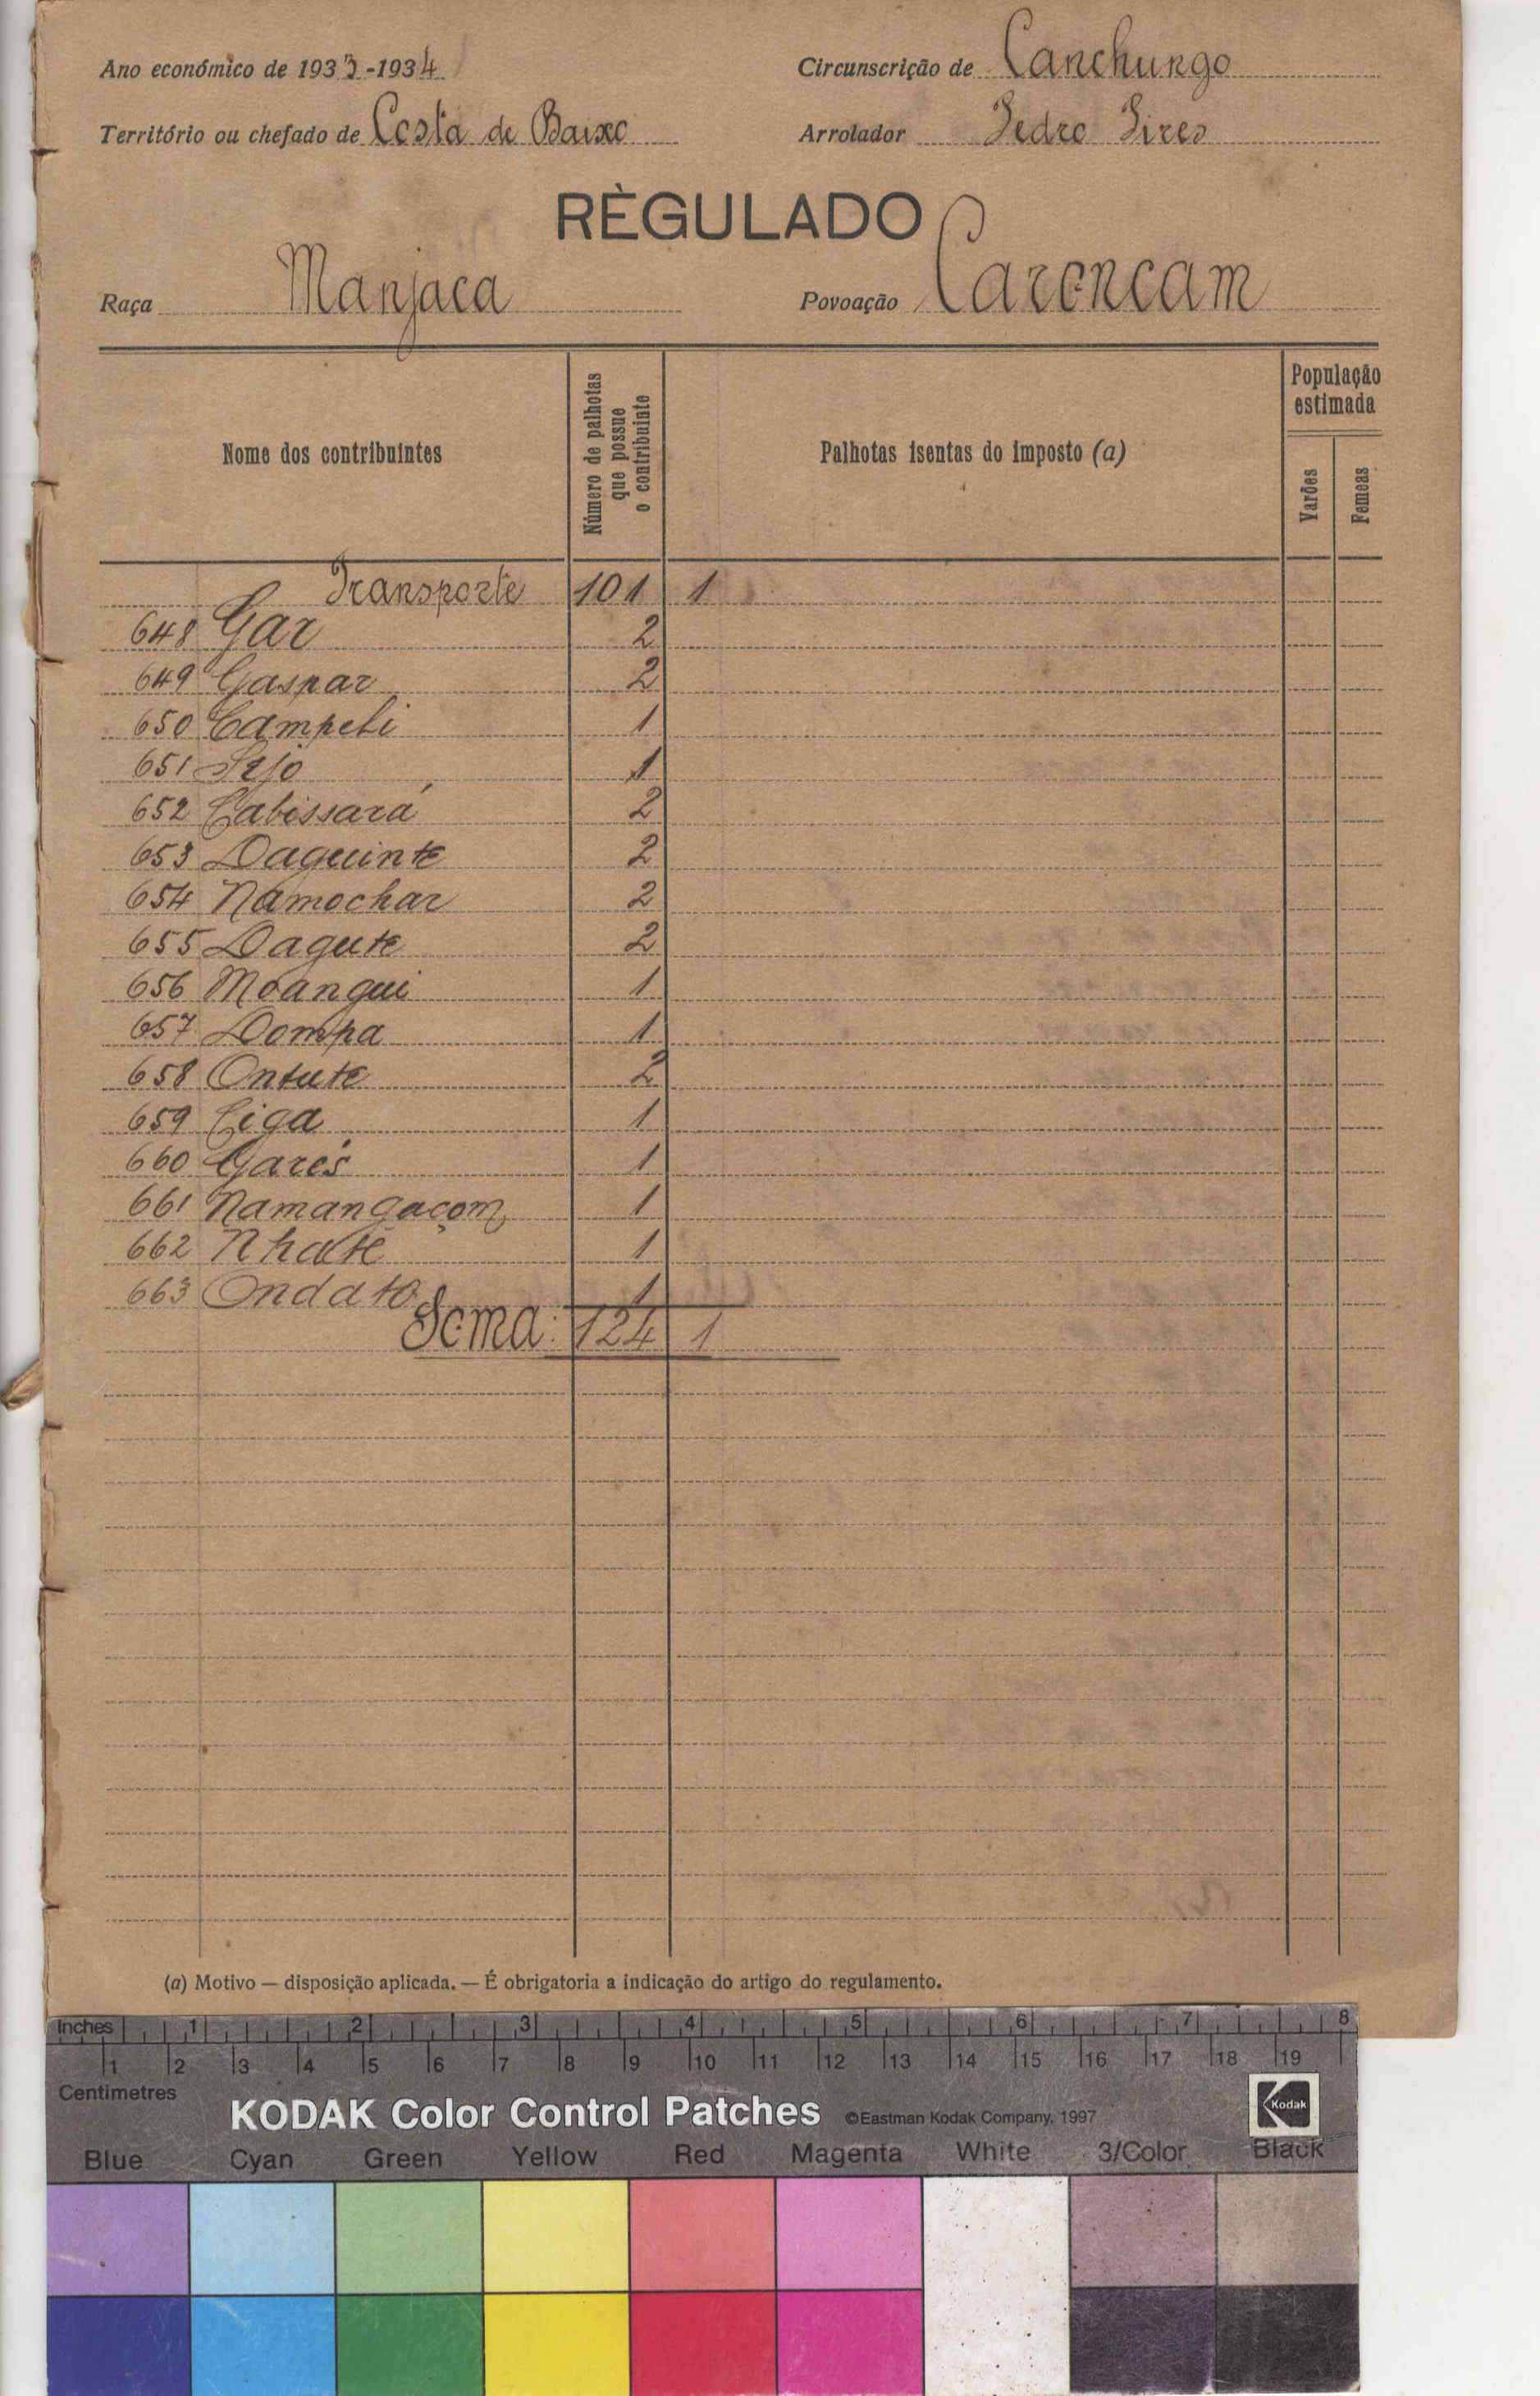 Ano económico de 1933-1934
Circunscrição de Canchungo
Território ou chefado de Costa de Baixo
Arrolador Pedro Pires
RÈGULADO
Raça Manjaca
Povoação Caroncam
Nome dos contribuintes
Número de palhotas que possue o contribuinte
Palhotas isentas do imposto (a)
População estimada
Varões
Femeas
Transporte 101 1
648 Gar 2
649 Gaspar 2
650 Campeli 1
651 1
652 Cabissará 2
653 Daguinte 2
654 Namochar 2
655 Dagute 2
656 Moangui 1
657 Dompa 1
658 Ontute 2
659 Ciga 1
660 Garés 1
661 Namangaçom 1
662 Nhaté 1
663 Ondato 1
Soma: 124 1
(a) Motivo — disposição aplicada. — É obrigatoria a indicação do artigo do regulamento.
Inches 1 2 3 4 5 6 7 8
1 2 3 4 5 6 7 8 9 10 11 12 13 14 15 16 17 18 19
Centimetres
KODAK Color Control Patches ©Eastman Kodak Company, 1997 Kodak
Blue Cyan Green Yellow Red Magenta White 3/Color Black